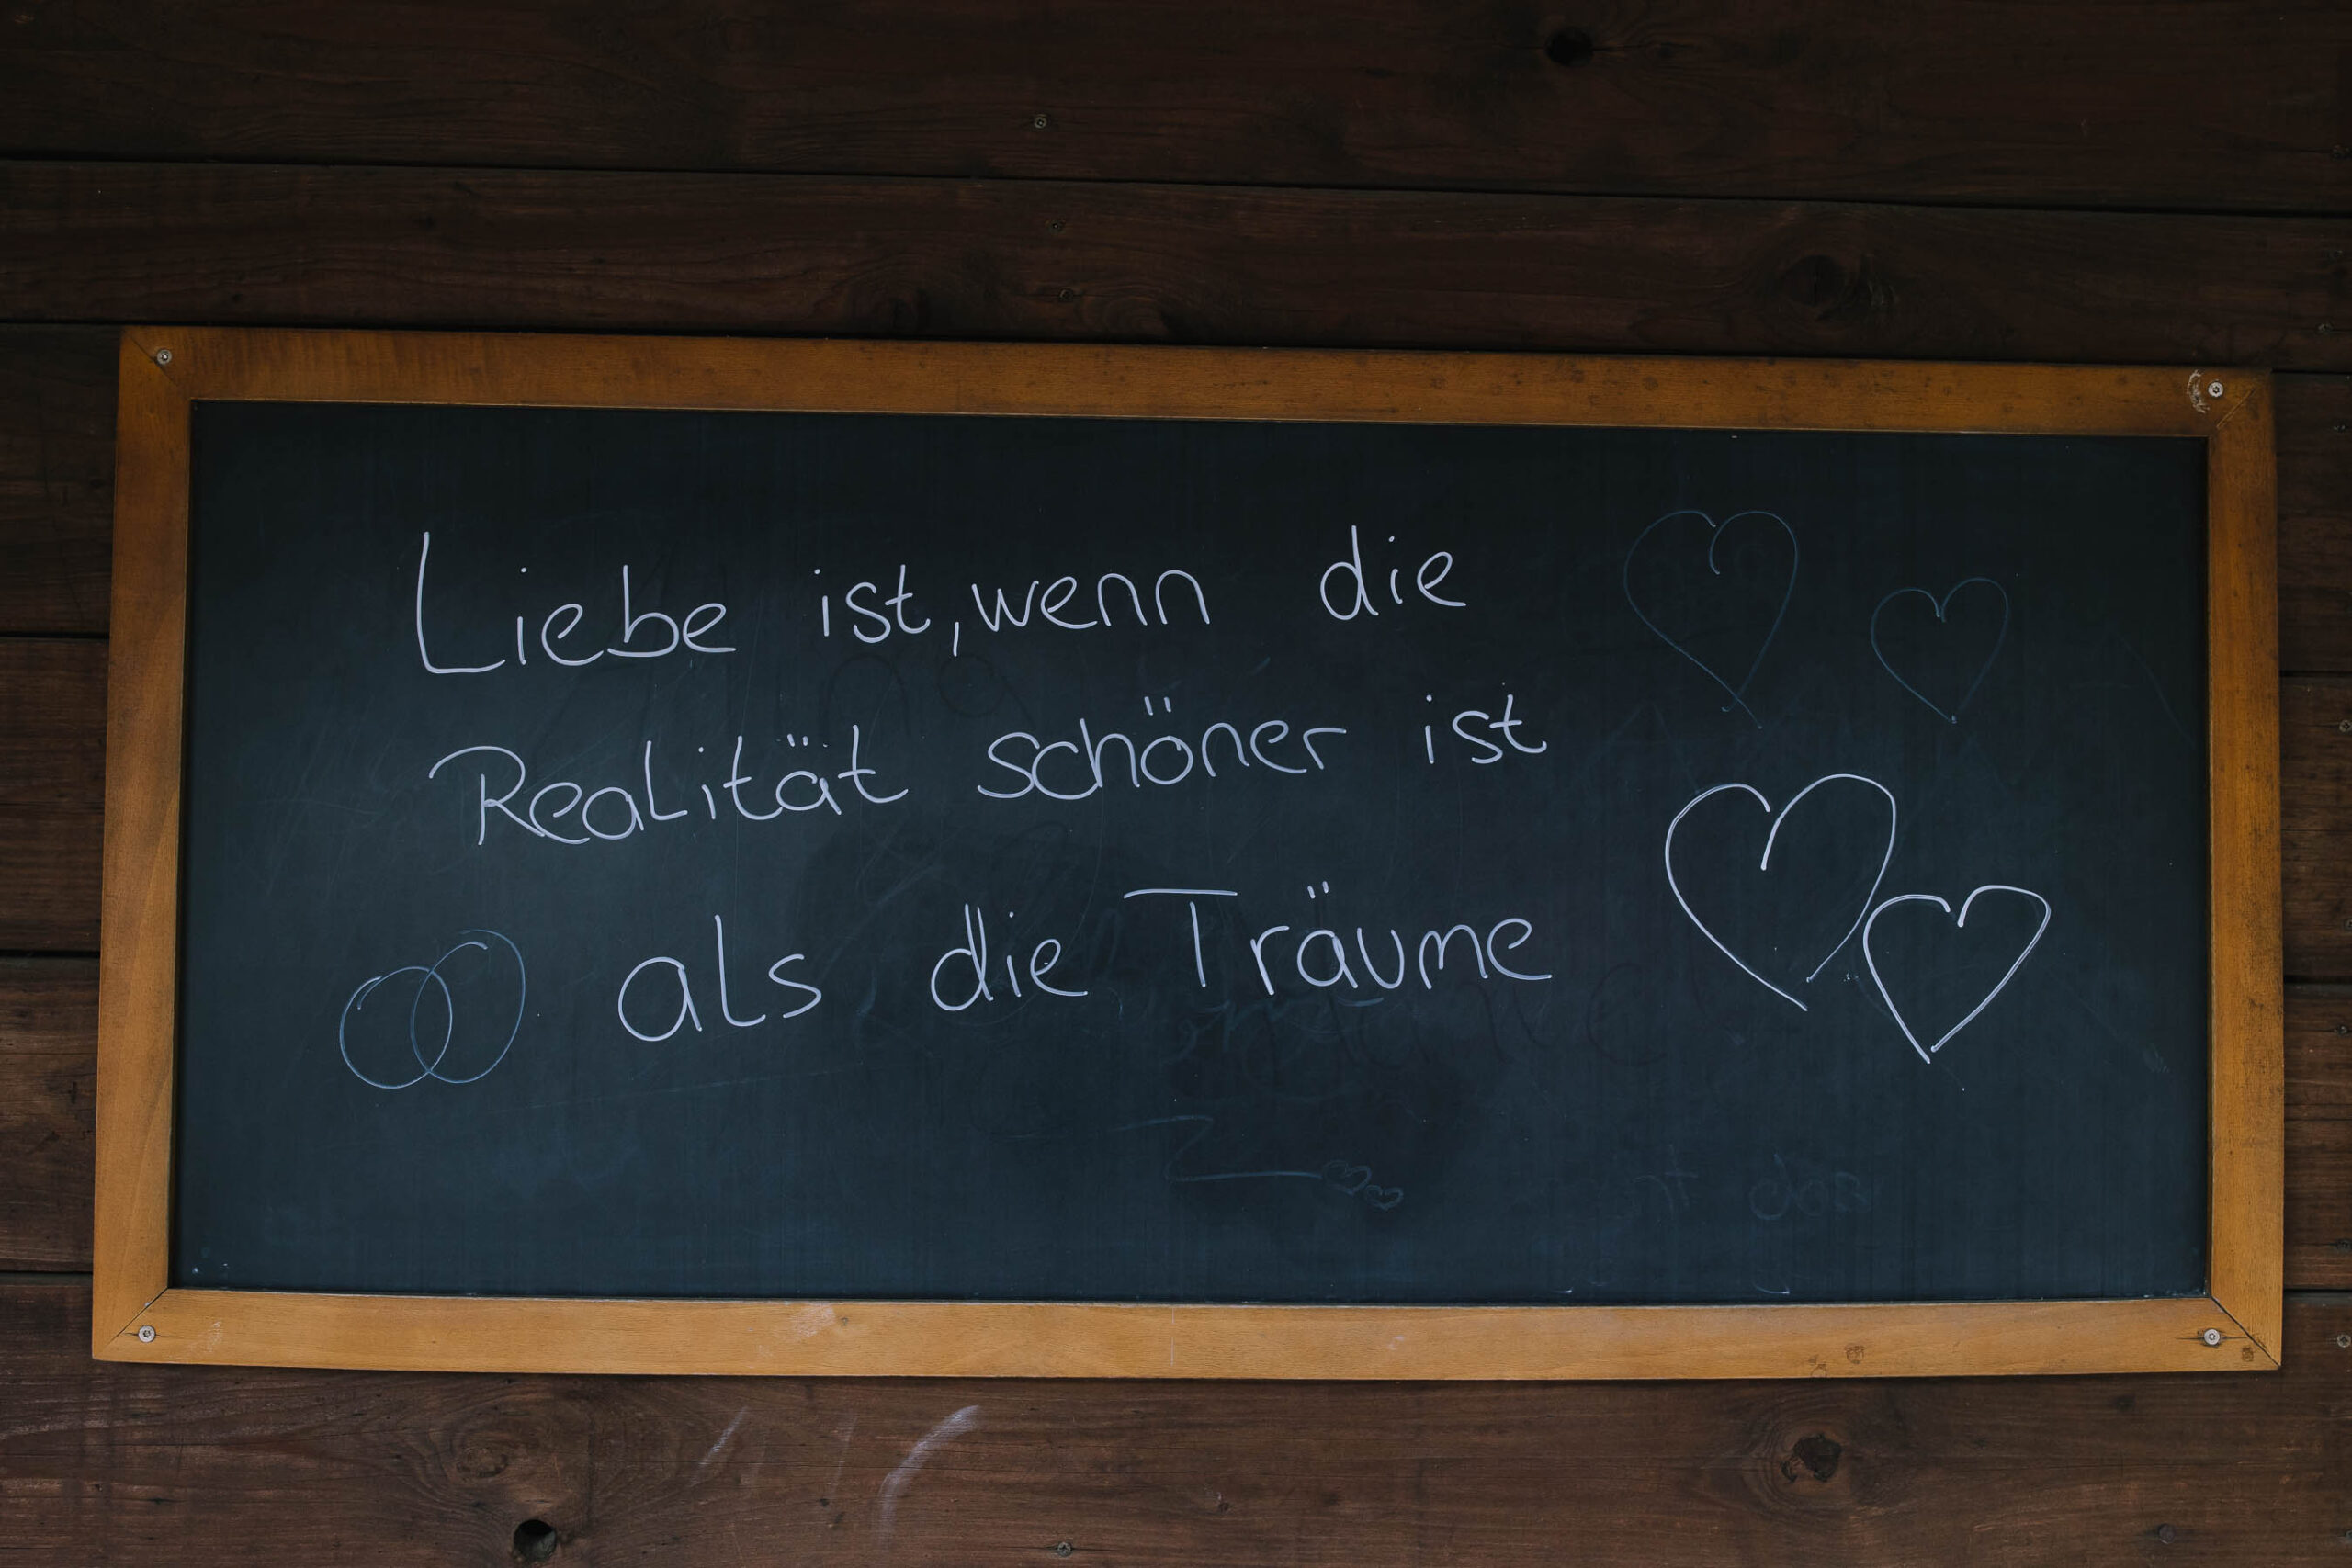 Liebe ist, wenn die
Realität schöner ist
als die Träume